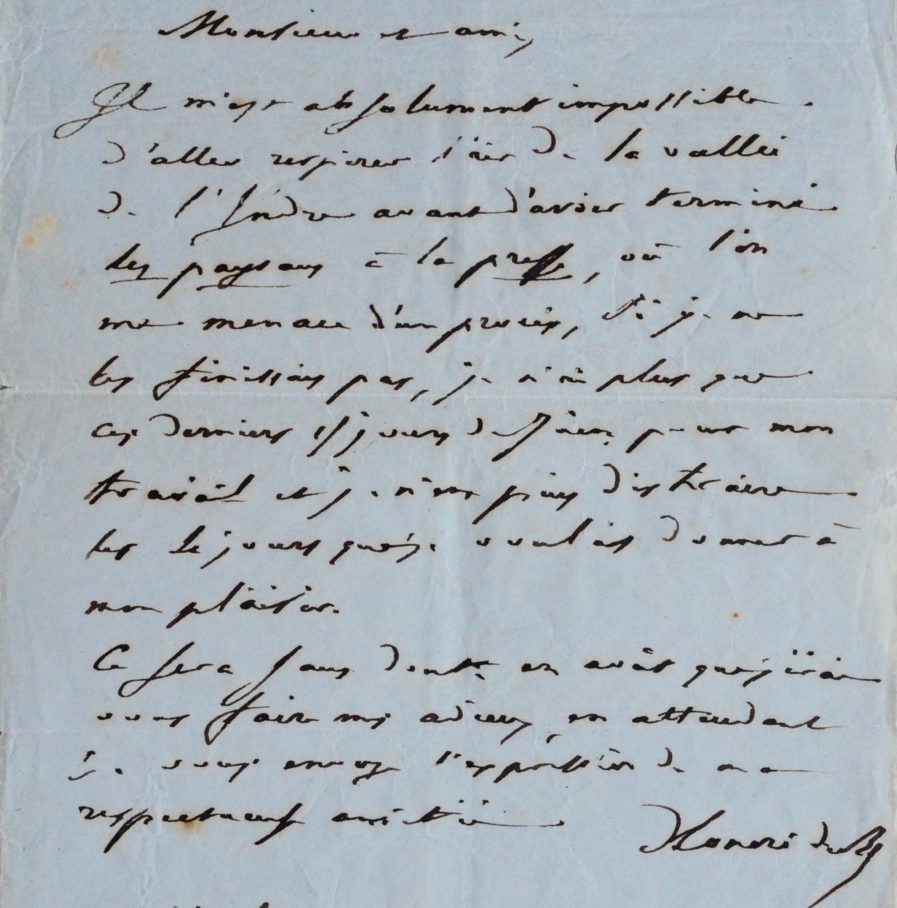 Monsieur et ami,
Il m'est absolument impossible
d'aller respirer l'air de la vallée
de l'Indre avant d'avoir terminé
les paysans à la presse, où l'on
me menace d'un procès, si je ne
les finissais pas, je n'ai plus que
ces derniers 15 jours de Juin pour mon
travail et je n'en puis distraire
les jours que je voulais donner à
mon plaisir.
Ce sera sans doute en août que j'irai
vous faire mes adieux, en attendant
je vous envoye l'expression de ma
respectueuse amitié
Honoré de B